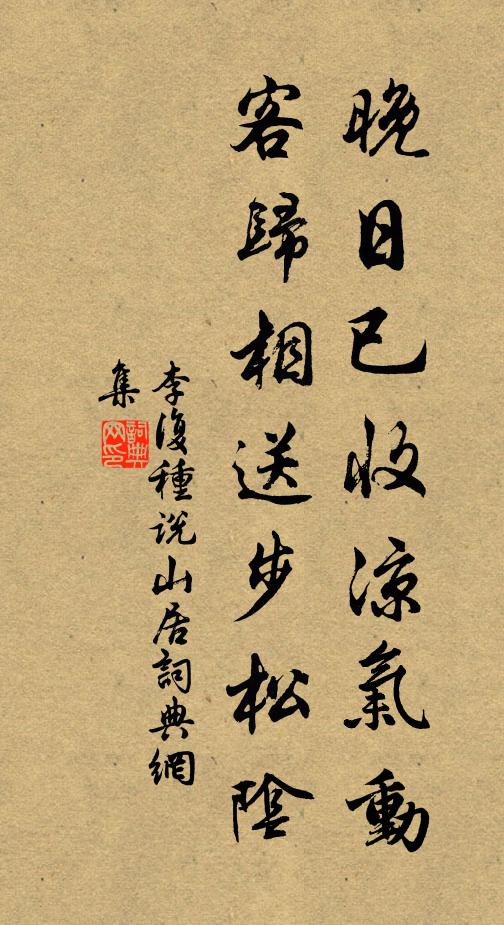 晚日已收凉氣動
客歸相送步松陰
李復種説山居詞典網
集
詞典
网印